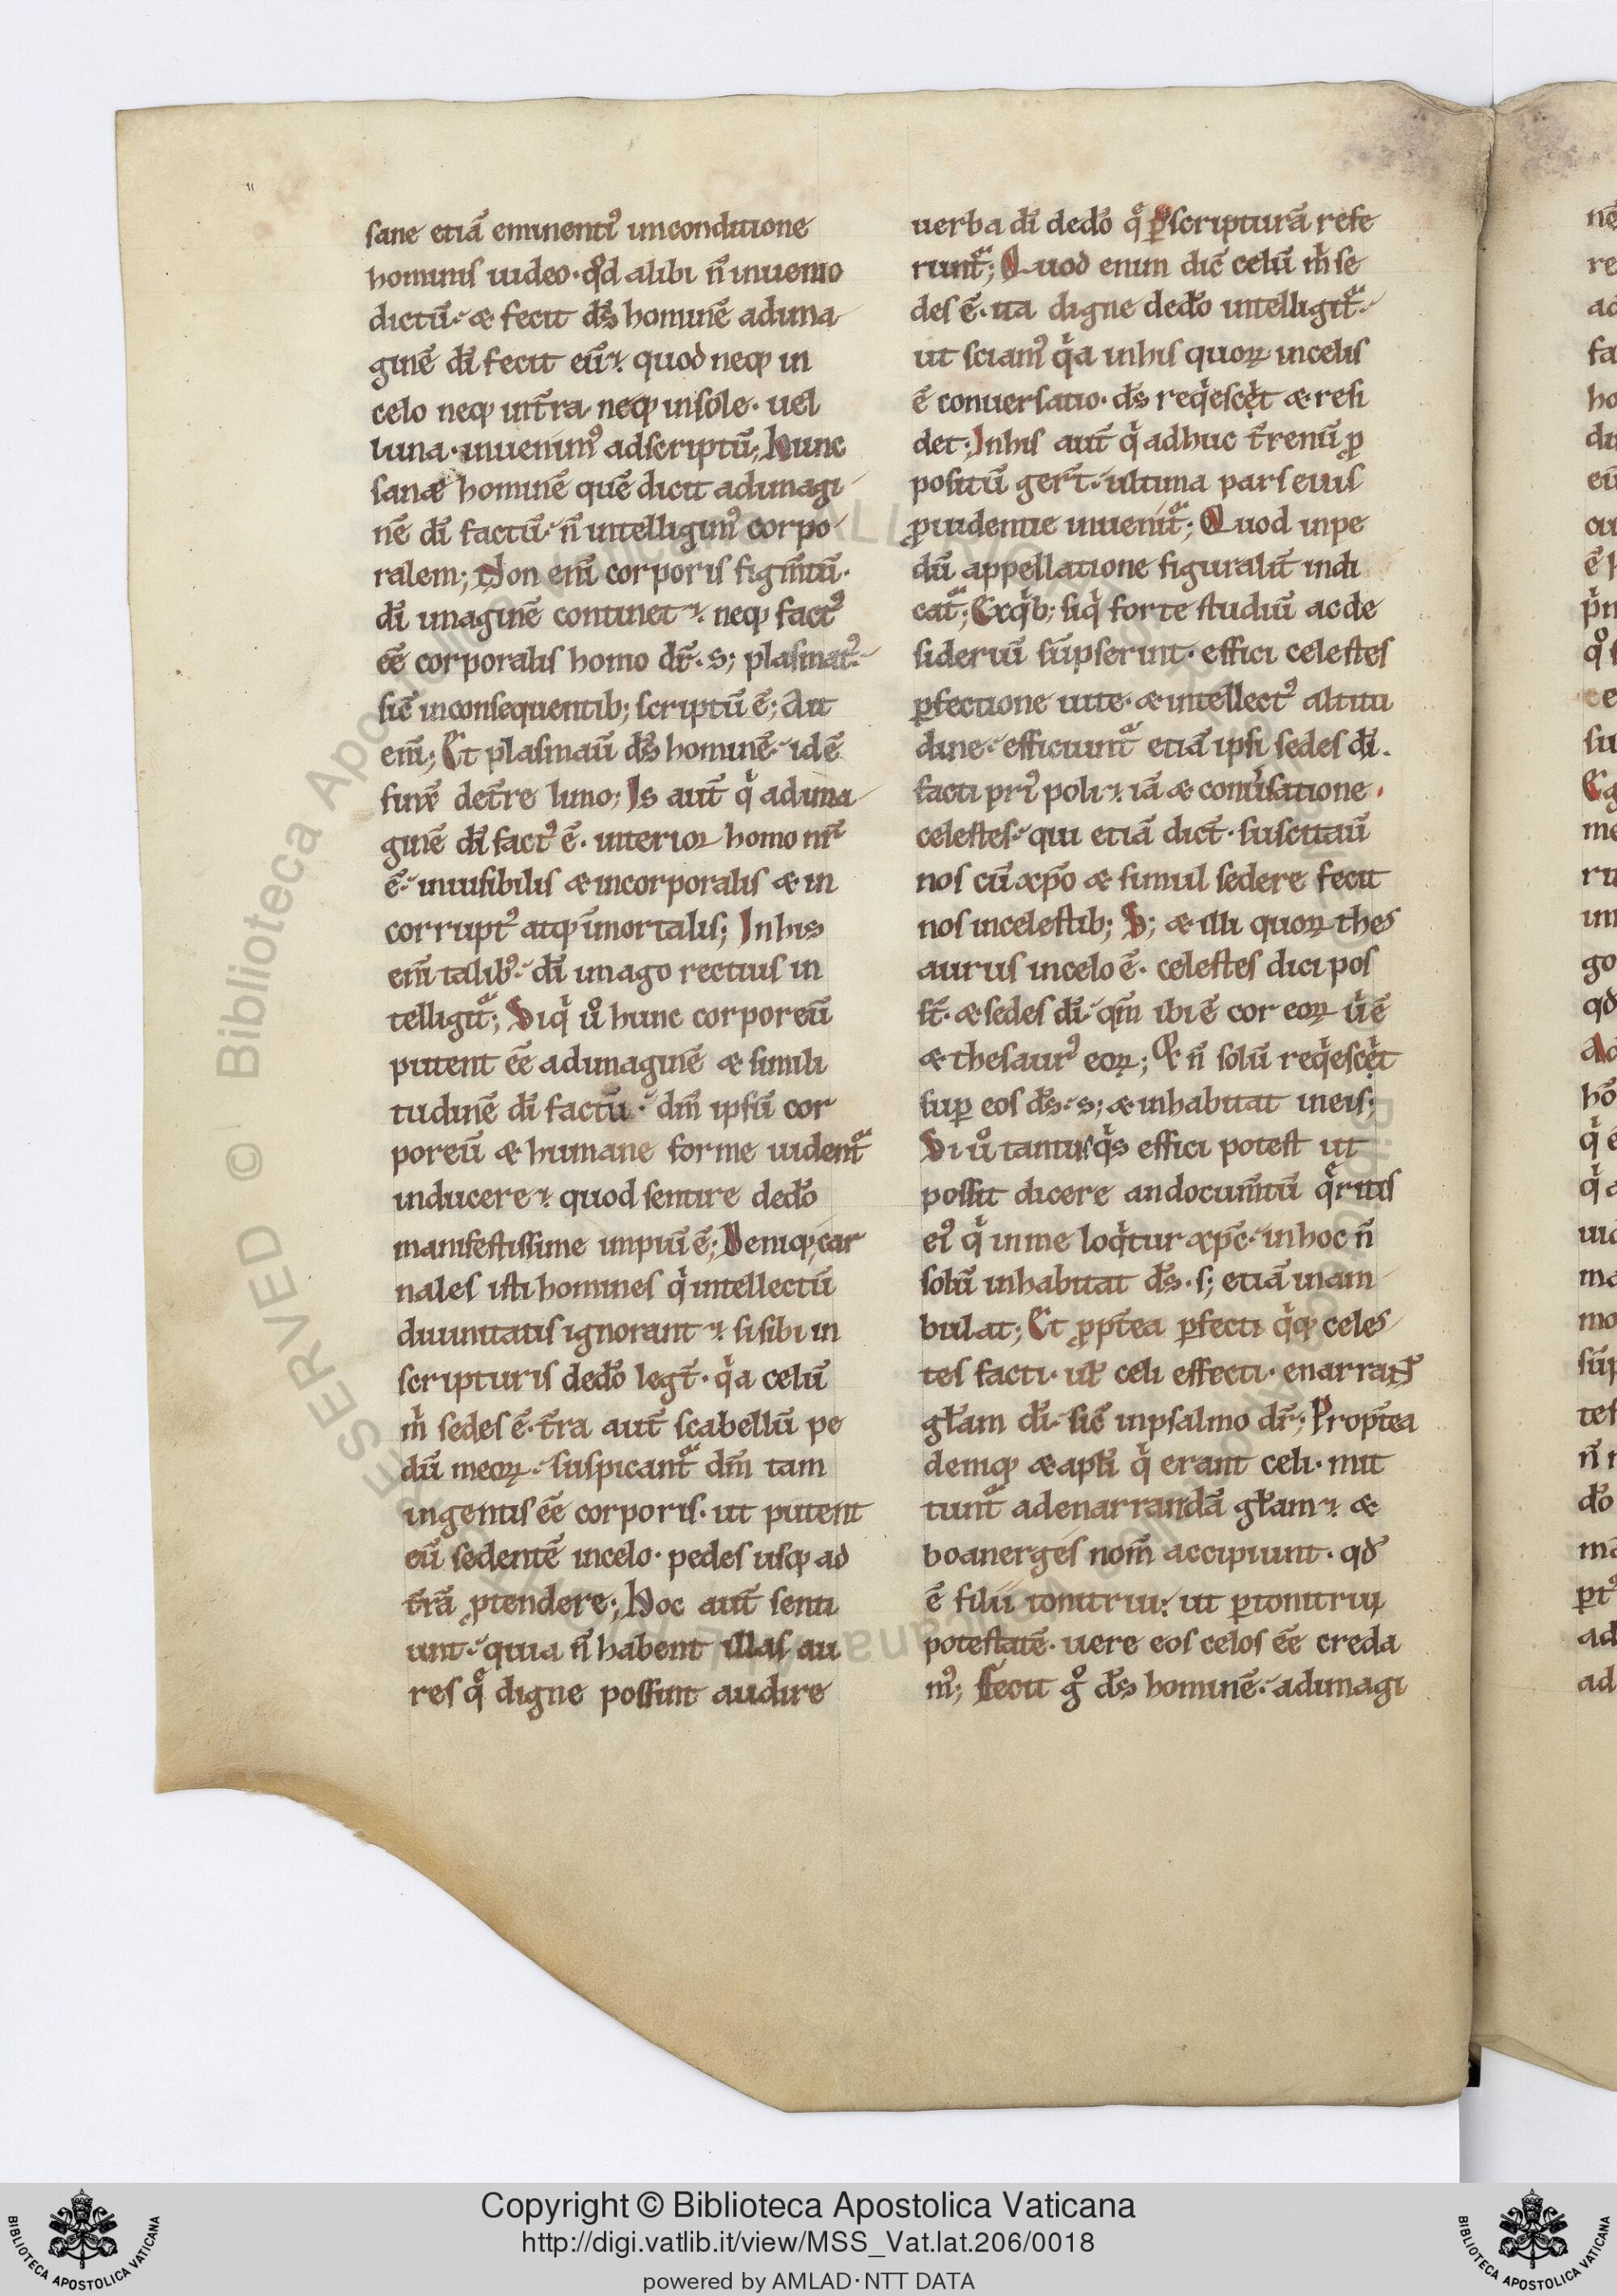 sane etiā eminenti᾽ inconditione
hominis uideo· qd̓ alibi n̄ inuenio
dictū· æ fecit ds̄ hominē adima
ginē dī fecit eū· quod neq; in
celo neq; int̄ra neq; insole· uel
luna· inuenim᾽ adscriptū; Hunc
sanæ hominē quē dicit adimagi
nē dī factū· n̄ intelligim᾽ corpo
ralem; Non enī corporis figm̄tū·
dī imaginē continet· neq; fact᾽
eē corporalis homo dr̄· s; plasmat᾽·
sic̄ inconsequentib; scriptū ē; Ait
enī; Et plasmau̅ ds̄ hominē· id ē
finx̄ det̄re limo; Is aut̄ qⁱ adima
ginē dī fact᾽ ē· interior homo nr̄
ē· inuisibilis æ incorporalis æ in
corrupt᾽ atq; īmortalis; In his
enī talib᾽· dī imago rectius in
telligit̄; Siqⁱ u̓ hunc corporeū
putent eē adimaginē æ simili
tudinē dī factū· dm̄ ipsū cor
poreū æ humane forme uident̄
inducere· quod sentire dedo̅
manifestissime impiū ē; Deniq; car
nales isti homines qⁱ intellectū
diuinitatis ignorant· si sibi in
scripturis dedo̅ legt̄· qⁱa celū
mⁱ sedes ē· t̄ra aut̄ scabellū pe
dū meoꝝ· suspicant̄ dm̄ tam
ingentis eē corporis· ut putent
eū sedentē incelo· pedes usq; ad
t̄rā ꝓtendere; Hoc aut̄ senti
unt· quia n̄ habent illas au
res q̄ digne possint audire
uerba dī dedo̅ q̄ ꝑscripturā refe
runt̄; Quod enim dic̄ celū mⁱ se
des ē· ita digne dedo̅ intelligit̄·
ut sciam᾽ qⁱa inhis quoꝝ incelis
ē conuersatio· ds̄ reqⁱescⁱt æ resi
det; Inhis aut̄ qⁱ adhuc t̄renū ꝓ
positū ger̄t· ultima pars eius
ꝓuidentie inuenit̄; Quod inpe
dū appellatione figuralit̄ indi
cat̄; Exqⁱb; siqⁱ forte studiū ac de
sideriū sūpserint· effici celestes
ꝑfectione uite· æ intellect᾽ altitu
dine· efficiunt̄ etiā ipsi sedes dī·
facti pri᾽ poli· iā æ conūsatione·
celestes· qui etiā dict̄· suscitau̅
nos cū xp̄o æ simul sedere fecit
nos incelestib; S; æ illi quoꝝ thes
aurus incelo ē· celestes dici pos
st̄· æ sedes dī· qm̄ ibi ē cor eoꝝ uⁱ ē
æ thesaur᾽ eoꝝ; Et n̄ solū reqⁱescⁱt
suꝑ eos ds̄· s; æ inhabitat in eis;
Si u̓ tantus qⁱs effici potest ut
possit dicere an documtū̄ qⁱritis
ei᾽ qⁱ in me loqⁱtur xp̄c· in hoc n̄
solū inhabitat ds̄· s; etiā inam
bulat; Et ꝓpt̄ea ꝑfecti qⁱq; celes
tes facti· ul̓ celi effecti· enarrant̄
gl̄am dī· sic̄ inpsalmo dr̄; Propt̄ea
deniq; æ apl̄i qⁱ erant celi· mit
tunt̄ adenarrandā gl̄am· æ
boanerges nom̄ accipiunt· qd̓
ē filii tonitrui· ut ꝑtonitrui
potestatē· uere eos celos eē creda
m᾽; Fecit g̊ ds̄ hominē· adimagi
Copyright © Biblioteca Apostolica Vaticana
http://digi.vatlib.it/view/MSS_Vat.lat.206/0018
powered by AMLAD·NTT DATA
BIBLIOTECA APOSTOLICA VATICANA
BIBLIOTECA APOSTOLICA VATICANA